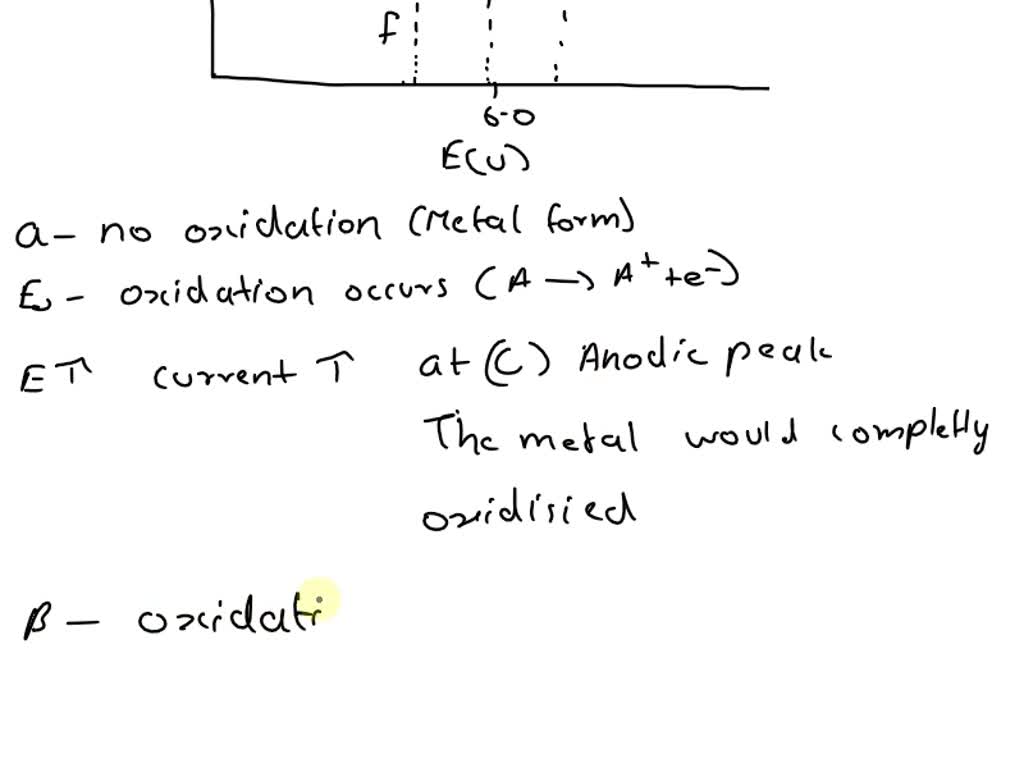 f
6.0
E(V)
a - no oxidation (Metal form)
E - oxidation occurs (A → A⁺ + e⁻)
E ↑ current ↑ at (C) Anodic peak
The metal would completly
oxidisied
B - oxidati